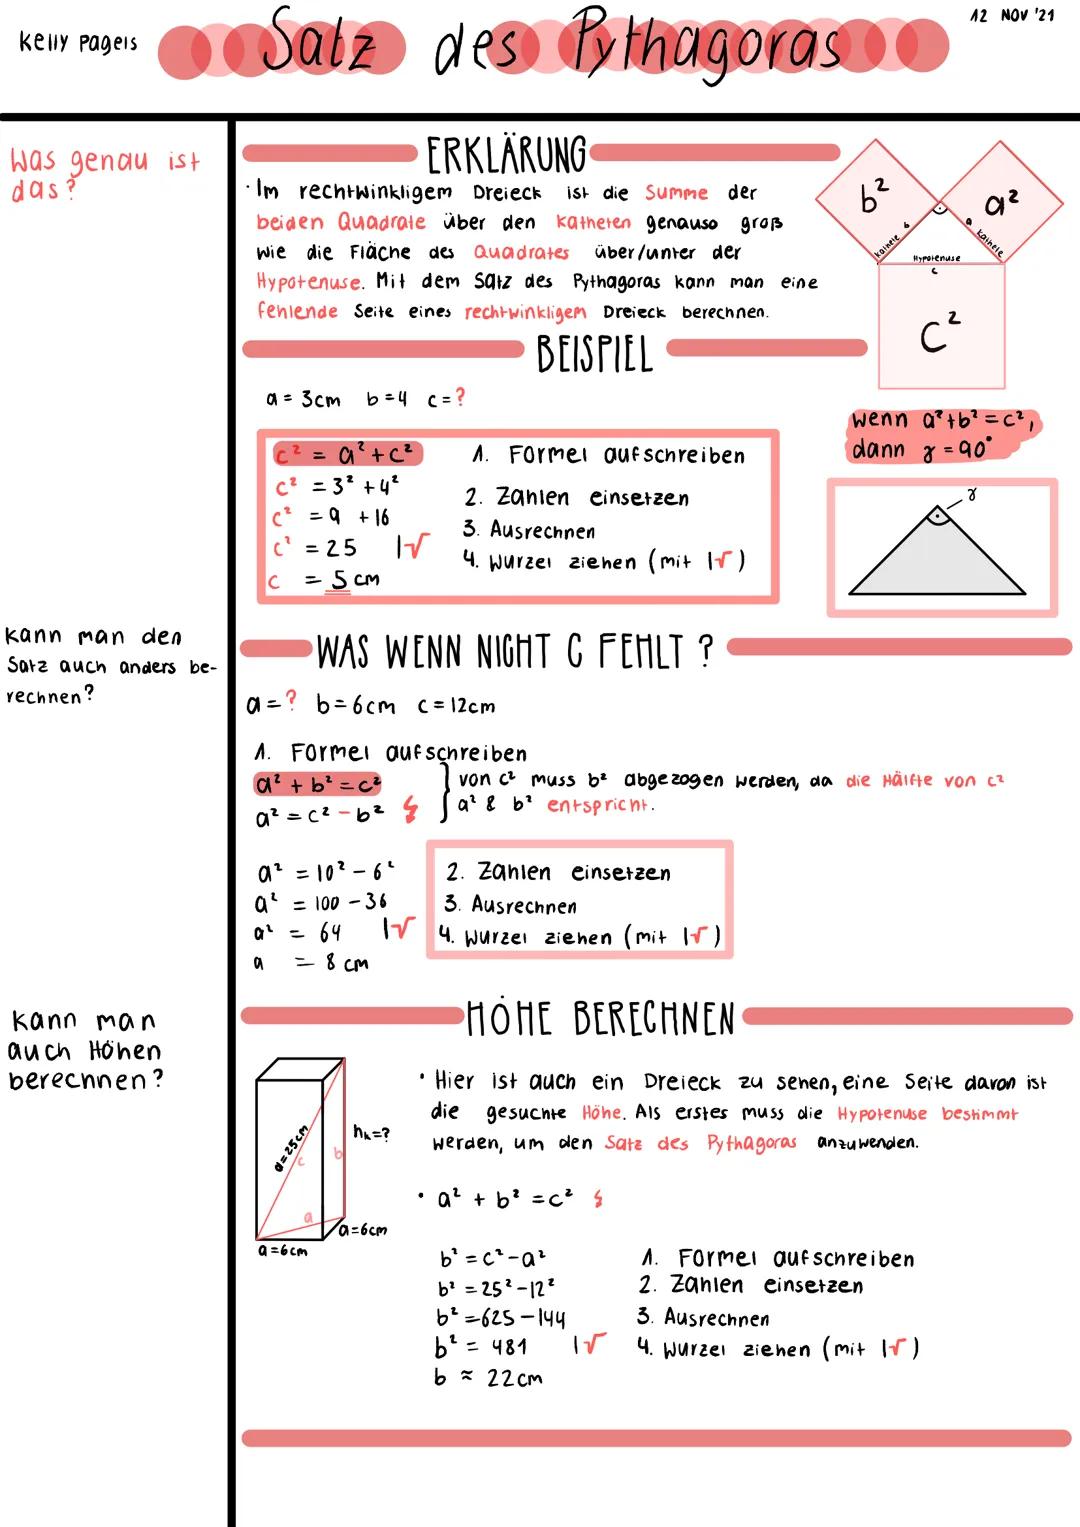 Kelly Pagels
Satz des Pythagoras
12 NOV '21
Was genau ist
das?
ERKLÄRUNG
· Im rechtwinkligem Dreieck ist die Summe der
beiden Quadrate über den Katheten genauso groß
wie die Fläche des Quadrates über/unter der
Hypotenuse. Mit dem Satz des Pythagoras kann man eine
fehlende Seite eines rechtwinkligem Dreieck berechnen.
b²
a²
Kathete b
a Kathete
Hypotenuse
c
c²
BEISPIEL
a = 3cm b=4 c=?
wenn a²+b²=c²,
dann γ=90°
γ
c² = a²+c²
c² = 3²+4²
c² = 9 +16
c² = 25 |√
c = 5 cm
1. Formel aufschreiben
2. Zahlen einsetzen
3. Ausrechnen
4. Wurzel ziehen (mit |√)
Kann man den
Satz auch anders be-
rechnen?
WAS WENN NICHT C FEHLT ?
a=? b=6cm c=12cm
1. Formel aufschreiben
a² + b² = c²
a² = c² - b²
von c² muss b² abgezogen werden, da die Hälfte von c²
a² & b² entspricht.
a² = 10² - 6²
a² = 100 - 36
a² = 64 |√
a = 8 cm
2. Zahlen einsetzen
3. Ausrechnen
4. Wurzel ziehen (mit |√)
Kann man
auch Höhen
berechnen?
HÖHE BERECHNEN
d=25cm
c
b
a
hₖ=?
a=6cm
a=6cm
· Hier ist auch ein Dreieck zu sehen, eine Seite davon ist
die gesuchte Höhe. Als erstes muss die Hypotenuse bestimmt
werden, um den Satz des Pythagoras anzuwenden.
· a² + b² = c²
b² = c² - a²
b² = 25² - 12²
b² = 625 - 144
b² = 481 |√
b ≈ 22cm
1. Formel aufschreiben
2. Zahlen einsetzen
3. Ausrechnen
4. Wurzel ziehen (mit |√)